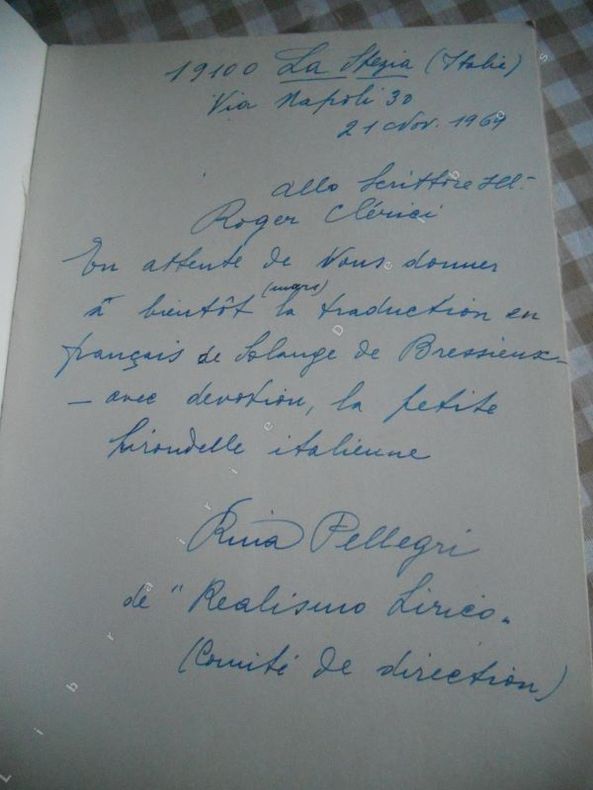 19100 La Spezia (Italie)
Via Napoli 30
21 Nov. 1969
allo Scrittore Ill.
Roger Clérici
En attente de Vous donner
à bientôt (mars) la traduction en
français de Solange de Bressieux-
- avec devotion, la petite
hirondelle italienne
Rina Pellegri
de "Realismo Lirico"
(Comité de direction)